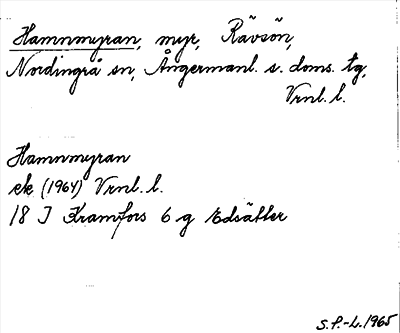 Hamnmyran, myr, Rävsön,
Nordingrå sn, Ångermanl. s. doms. tg,
Vrnl. l.
Hamnmyran
ek (1964) Vrnl. l.
18 I Kramfors 6 g Edsätter
S.P.-L. 1965